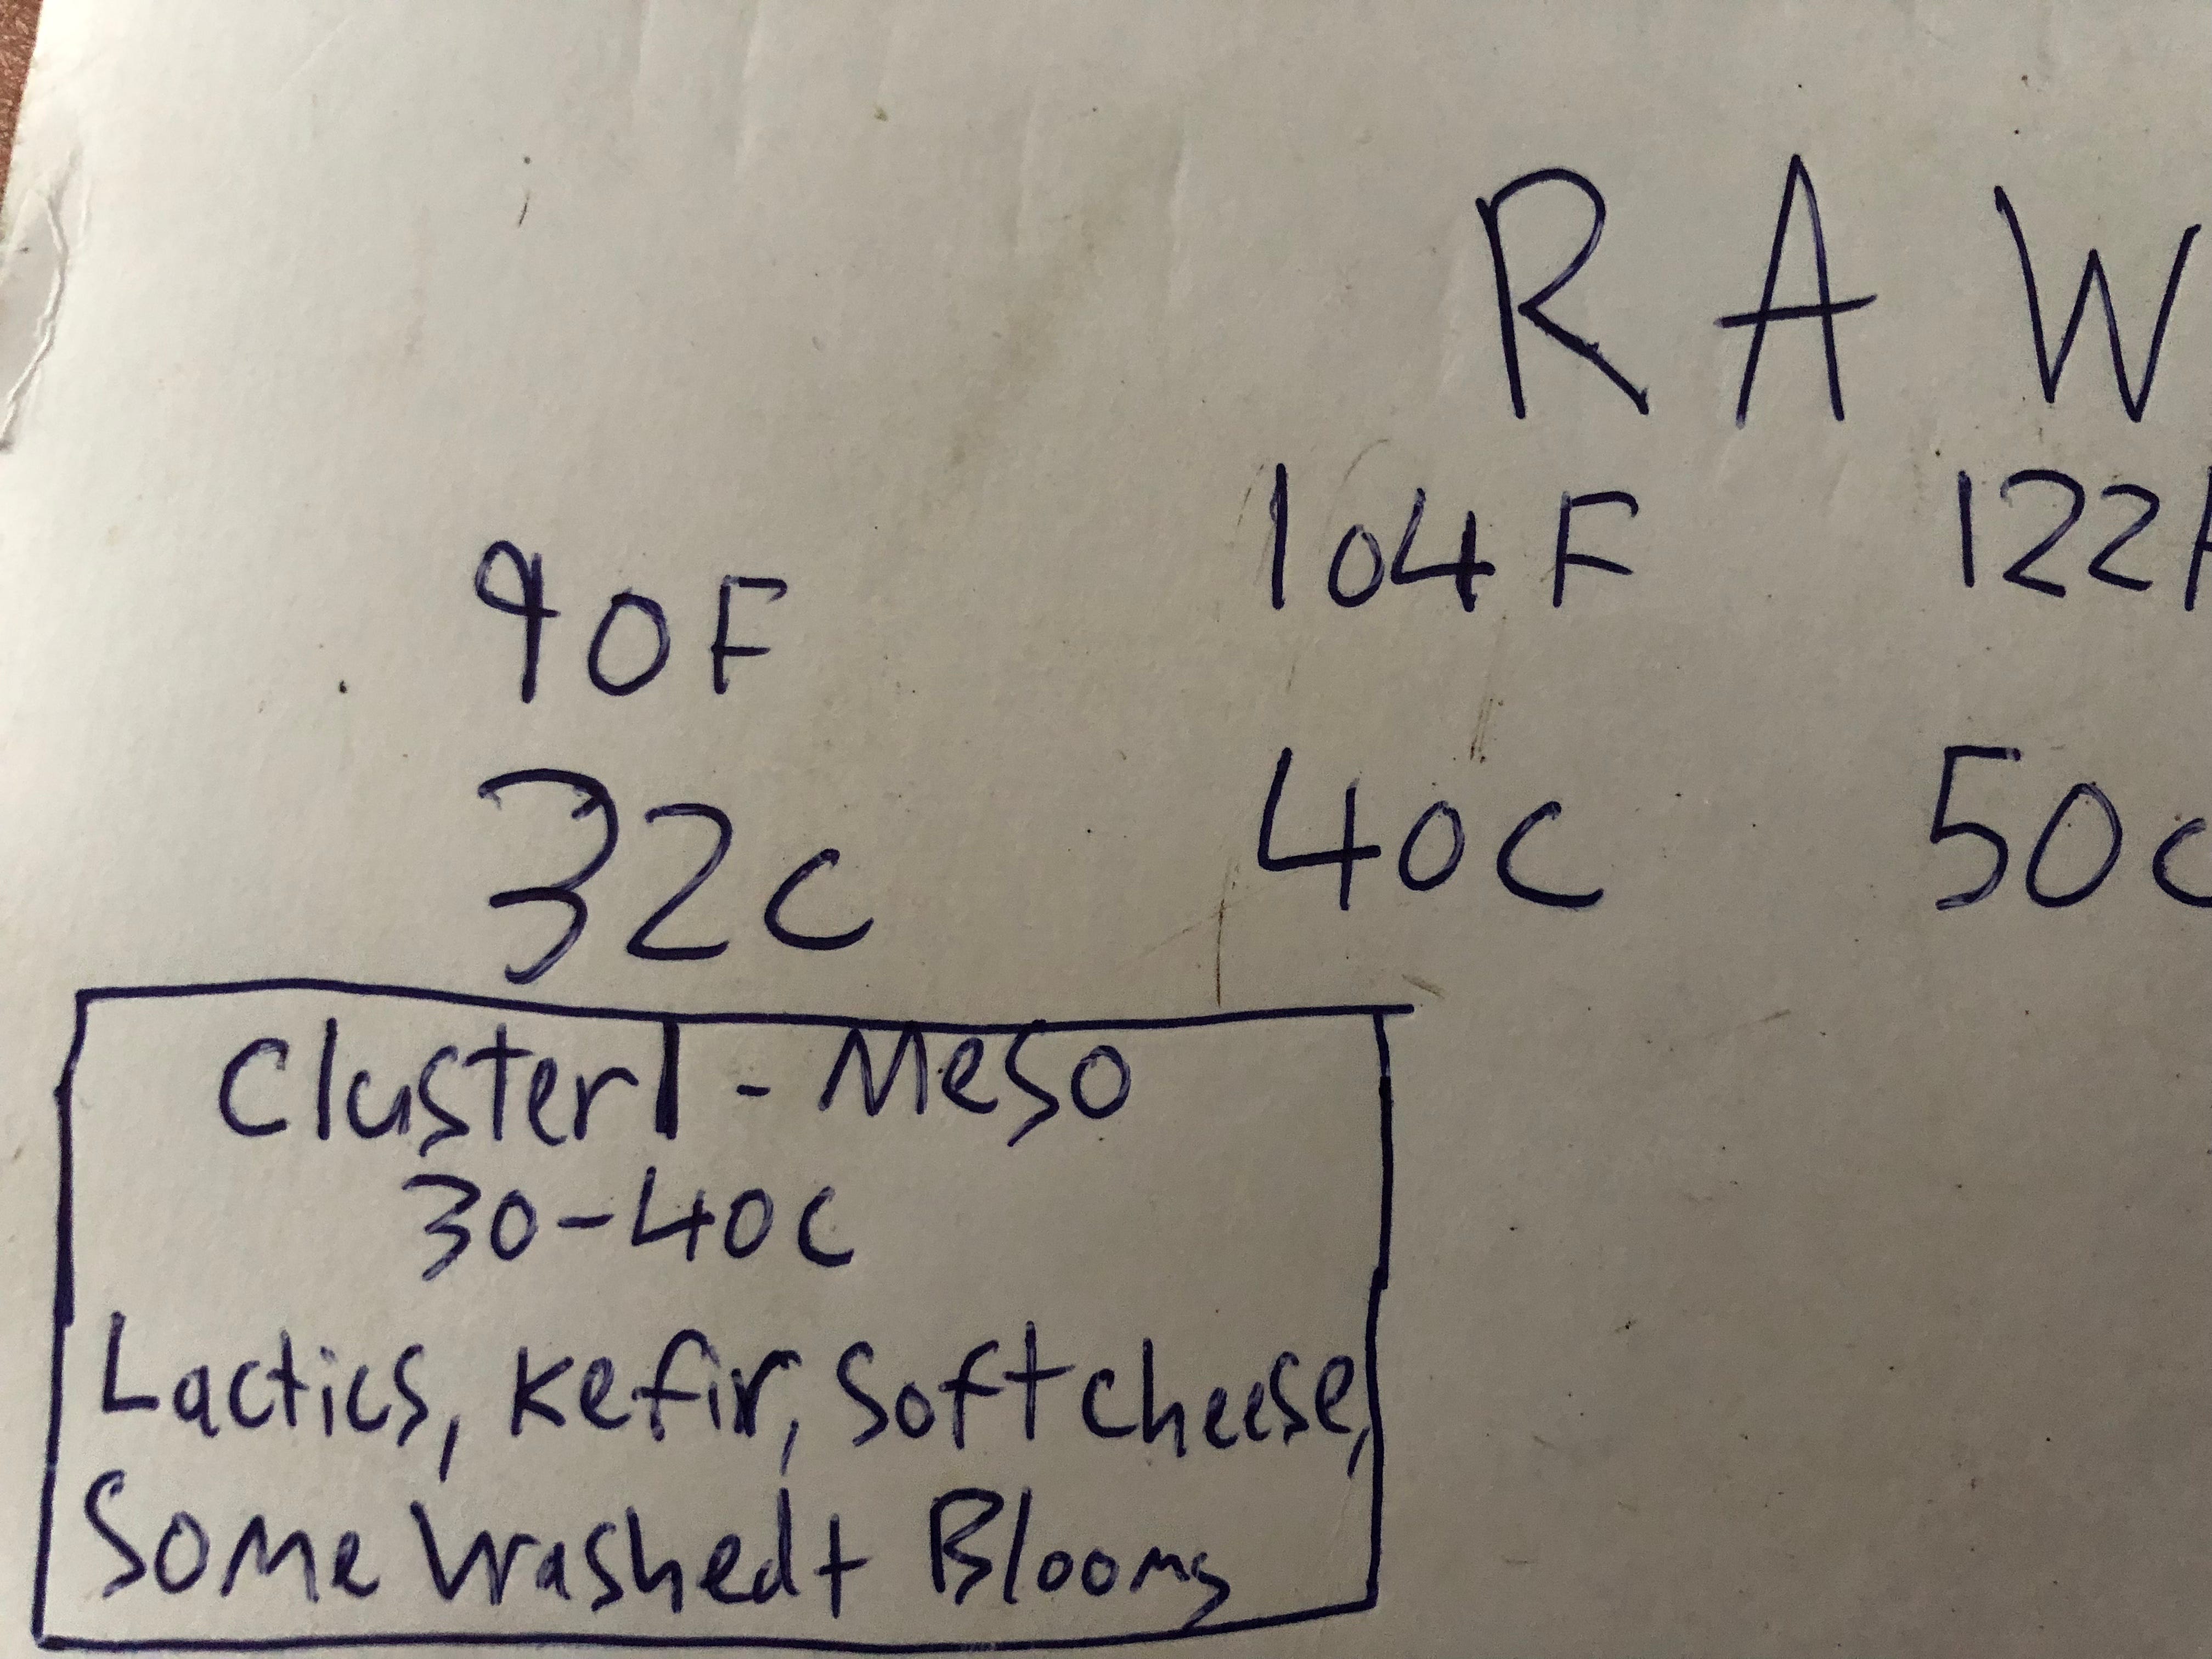 R A W
90F 104F 122F
32C 40C 50C
Cluster 1 - Meso
30-40C
Lactics, Kefir, Soft cheese,
Some Washed + Blooms